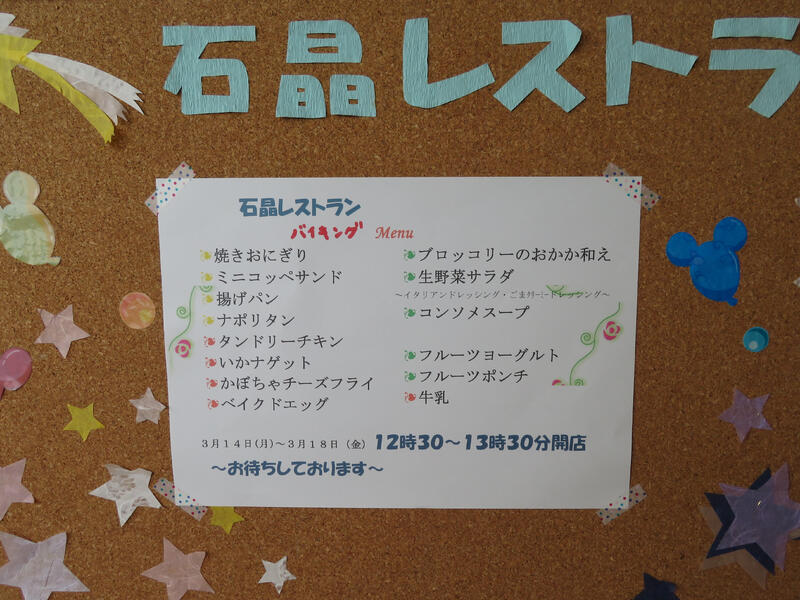 石晶レストラ
石晶レストラン
バイキング Menu
焼きおにぎり
ミニコッペサンド
揚げパン
ナポリタン
タンドリーチキン
いかナゲット
かぼちゃチーズフライ
ベイクドエッグ
ブロッコリーのおかか和え
生野菜サラダ
～イタリアンドレッシング・ごまクリーミードレッシング～
コンソメスープ
フルーツヨーグルト
フルーツポンチ
牛乳
3月14日(月)～3月18日（金） 12時30～13時30分開店
～お待ちしております～